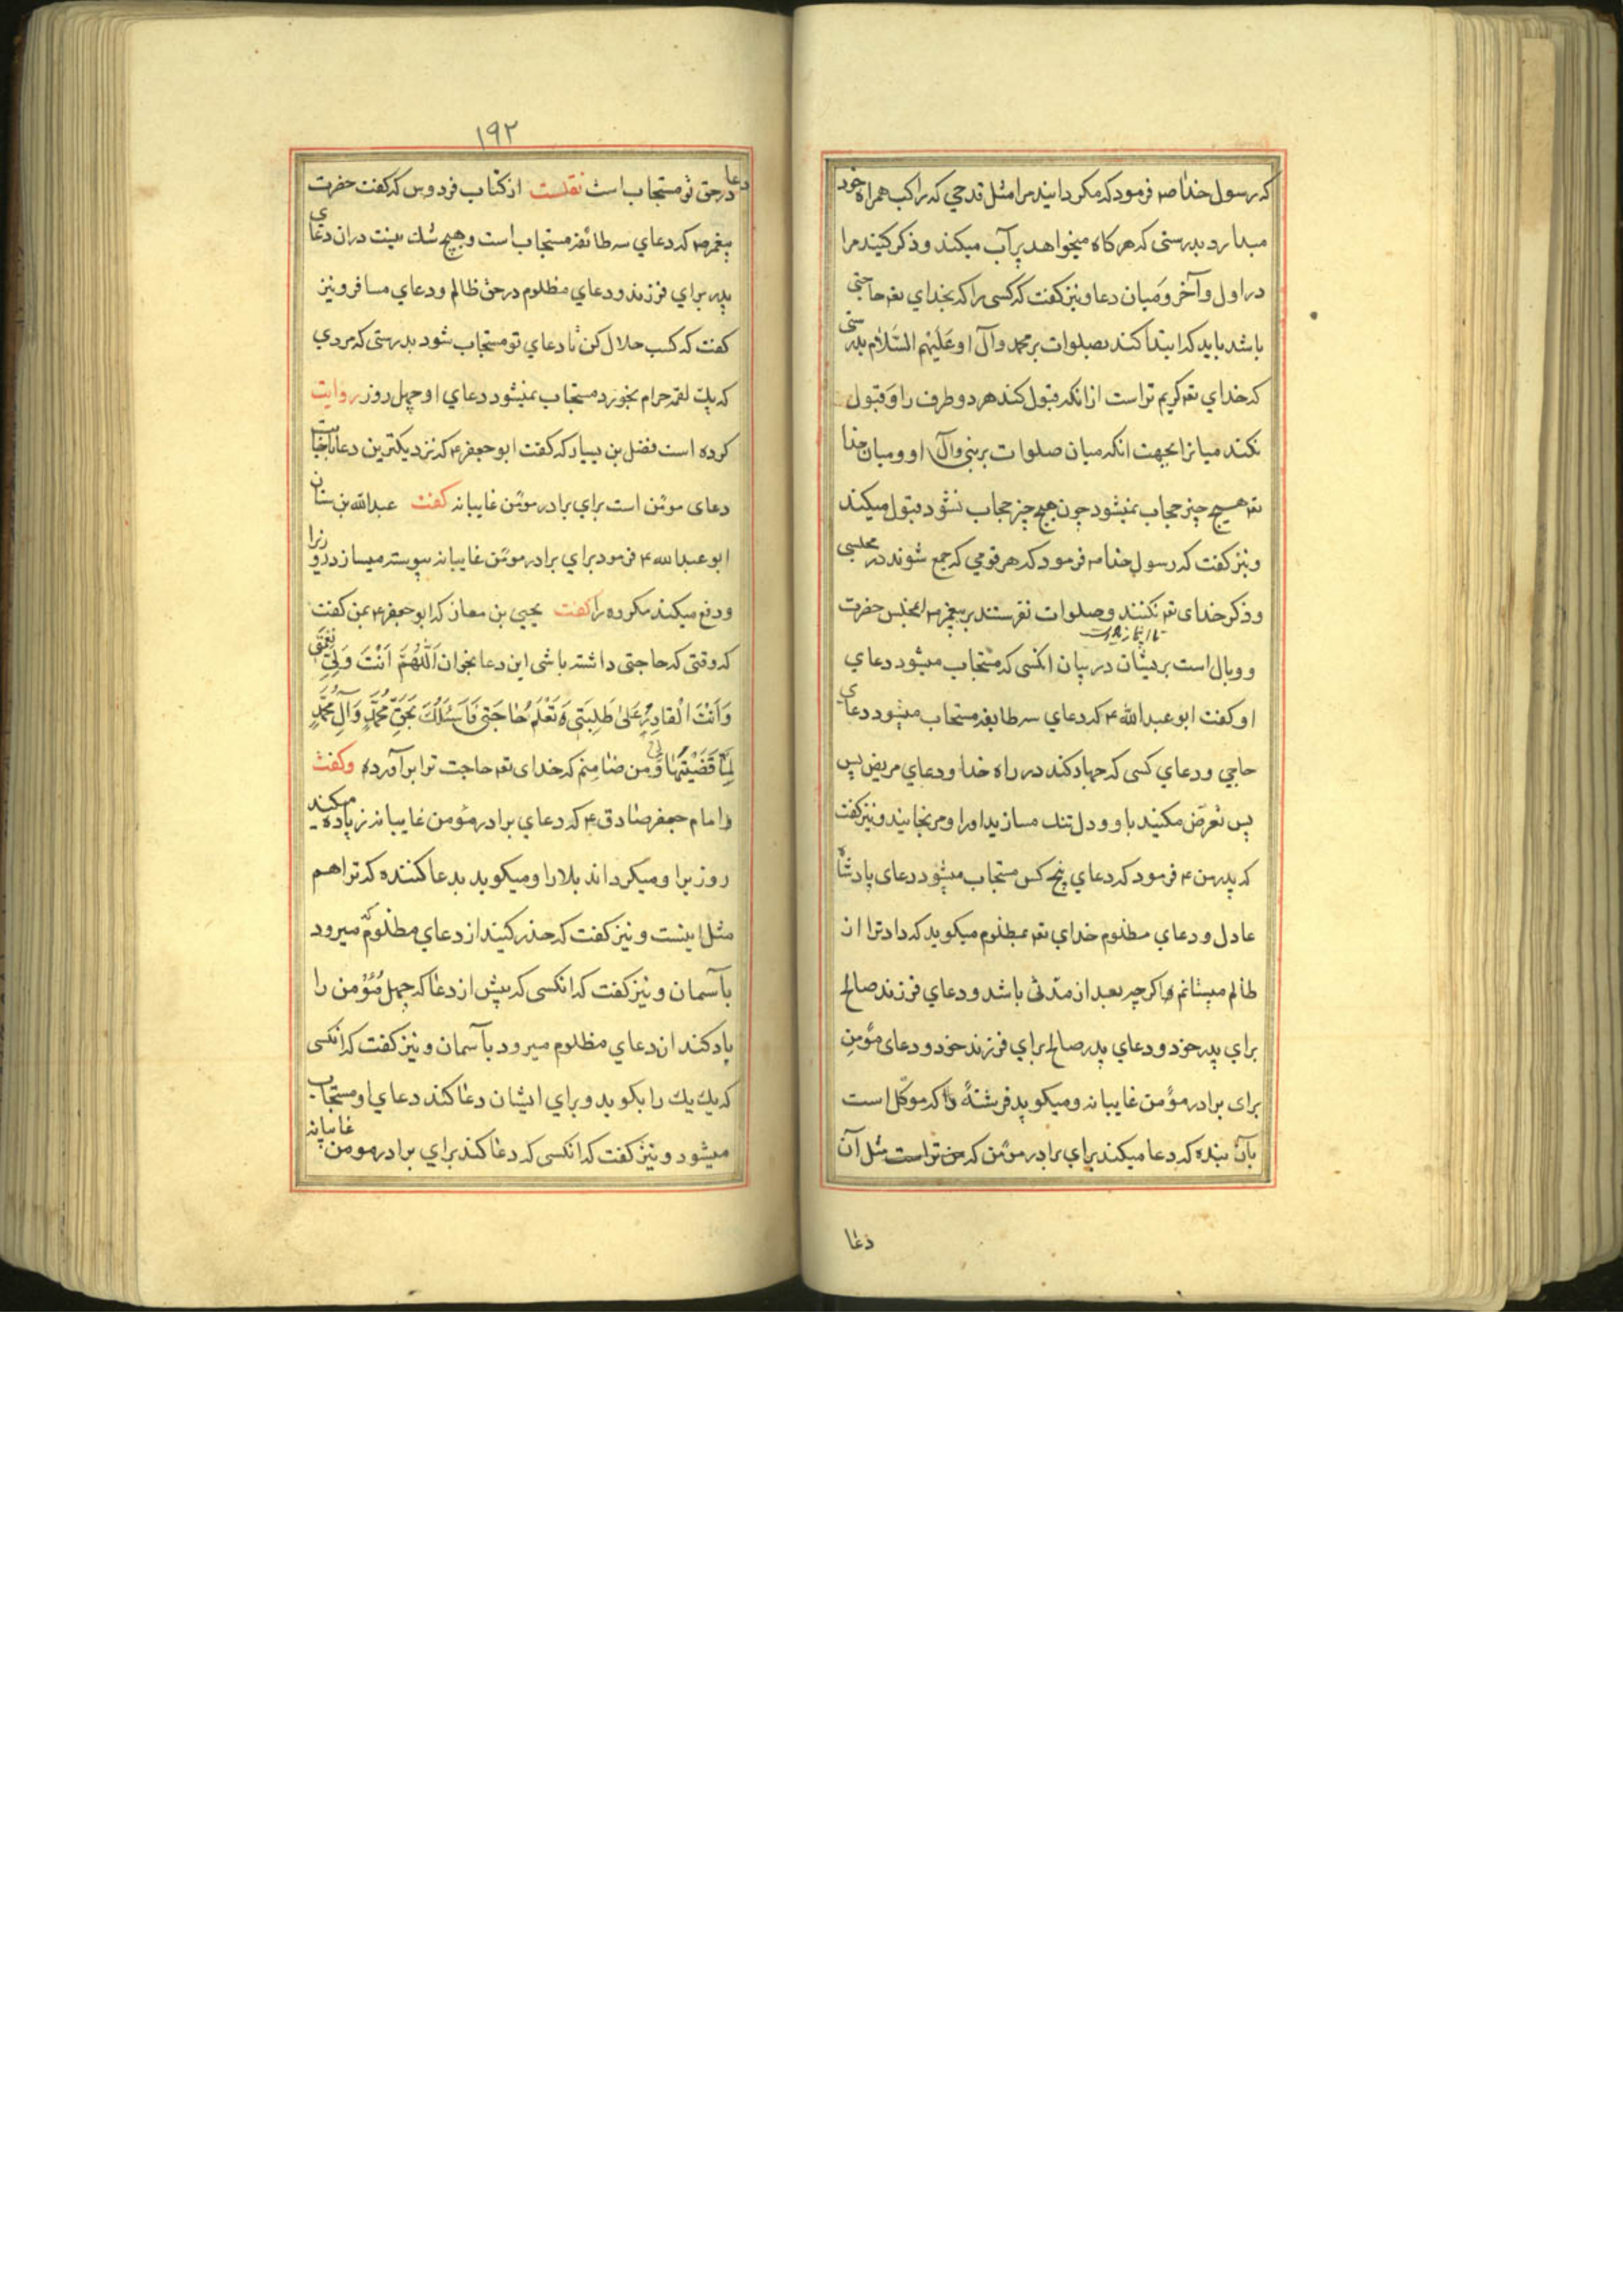 که رسول خدا صم فرمود که مکردانید مرا مثل قدحی که راکب همراه خود
میدارد بدرستی که هرکاه میخواهد پر آب میکند و ذکر کنید مرا
در اول و آخر و میان دعا و نیز کفت که کسی را که بخدای تعم حاجتی
باشد باید که ابتدا کند بصلوات بر محمد و آل او علیهم السلام بدرستی
که خدای تعم کریم تر است از انکه قبول کند هر دو طرف را و قبول
نکند میانرا بجهت انکه میان صلوات بر نبی و آل او و میان خدا
تعم هیچ چیز حجاب نمیشود چون هیچ چیز حجاب نشود قبول میکند
و نیز کفت که رسول خدا صم فرمود که هر قومی که جمع شوند در مجلسی
و ذکر خدای تعم نکنند و صلوات نفرستند بر پیغمبر صم انمجلس حضرت
و وبال است بریشان در بیان انکسی که مستجاب میشود دعای
او کفت ابو عبد الله ع که دعای سه طایفه مستجاب میشود دعای
حاجی و دعای کسی که جهاد کند در راه خدا و دعای مریض پس
پس تعرض مکنید با او و دل تنک مسازید او را و مرنجانید و نیز کفت
که پدر من ع فرمود که دعای پنج کس مستجاب میشود دعای پادشاه
عادل و دعای مظلوم خدای تعم بمظلوم میکوید که داد ترا از
ظالم میستانم و اکر چه بعد از مدتی باشد و دعای فرزند صالح
برای پدر خود و دعای پدر صالح برای فرزند خود و دعای مؤمن
برای برادر مؤمن غایبانه و میکوید فرشتهٔ را که موکل است
بآن بنده که دعا میکند برای برادر مؤمن که من تراست مثل آن
دعا
۱۹۲
دعا در حق تو مستجاب است نقلست از کتاب فردوس که کفت حضرت
پیغمبر صم که دعای سه طائفه مستجاب است و هیچ شک نیست دران دعای
پدر برای فرزند و دعای مظلوم در حق ظالم و دعای مسافر و نیز
کفت که کسب حلال کن تا دعای تو مستجاب شود بدرستی که مردی
که یک لقمه حرام بخورد مستجاب نمیشود دعای او چهل روز روایت
کرده است فضل بن یسار که کفت ابو جعفر ع که نزدیکترین دعا باجابت
دعای مومن است برای برادر مومن غایبانه کفت عبدالله بن سنان
ابو عبدالله ع فرمود برای برادر مومن غایبانه پیوسته میسازد روزیرا
و دفع میکند مکروه را کفت یحیی بن معاذ که ابو جعفر ع بمن کفت
که وقتی که حاجتی داشته باشی این دعا بخوان اَللّٰهُمَّ اَنْتَ وَلِیُّ نِعْمَتی
وَاَنْتَ الْقادِرُ عَلیٰ طَلِبَتی وَتَعْلَمُ حٰاجَتی فَاَسْئَلُکَ بِحَقِّ مُحَمَّدٍ وَآلِ مُحَمَّدٍ
لَمّٰا قَضَیْتَهٰا لی و من ضامنم که خدای تعم حاجت ترا برآورده و کفت
امام جعفر صادق ع که دعای برادر مؤمن غایبانه زیاده میکند
روزیرا و میکرداند بلا را و میکوید بدعا کننده که ترا هم
مثل اینست و نیز کفت که حذر کنید از دعای مظلوم که میرود
بآسمان و نیز کفت که انکسی که پیش از دعا که چهل مؤمن را
یاد کند ان دعای مظلوم میرود بآسمان و نیز کفت که انکسی
که یک یک را بکوید و برای ایشان دعا کند دعای او مستجاب
میشود و نیز کفت که انکسی که دعا کند برای برادر مومن غایبانه